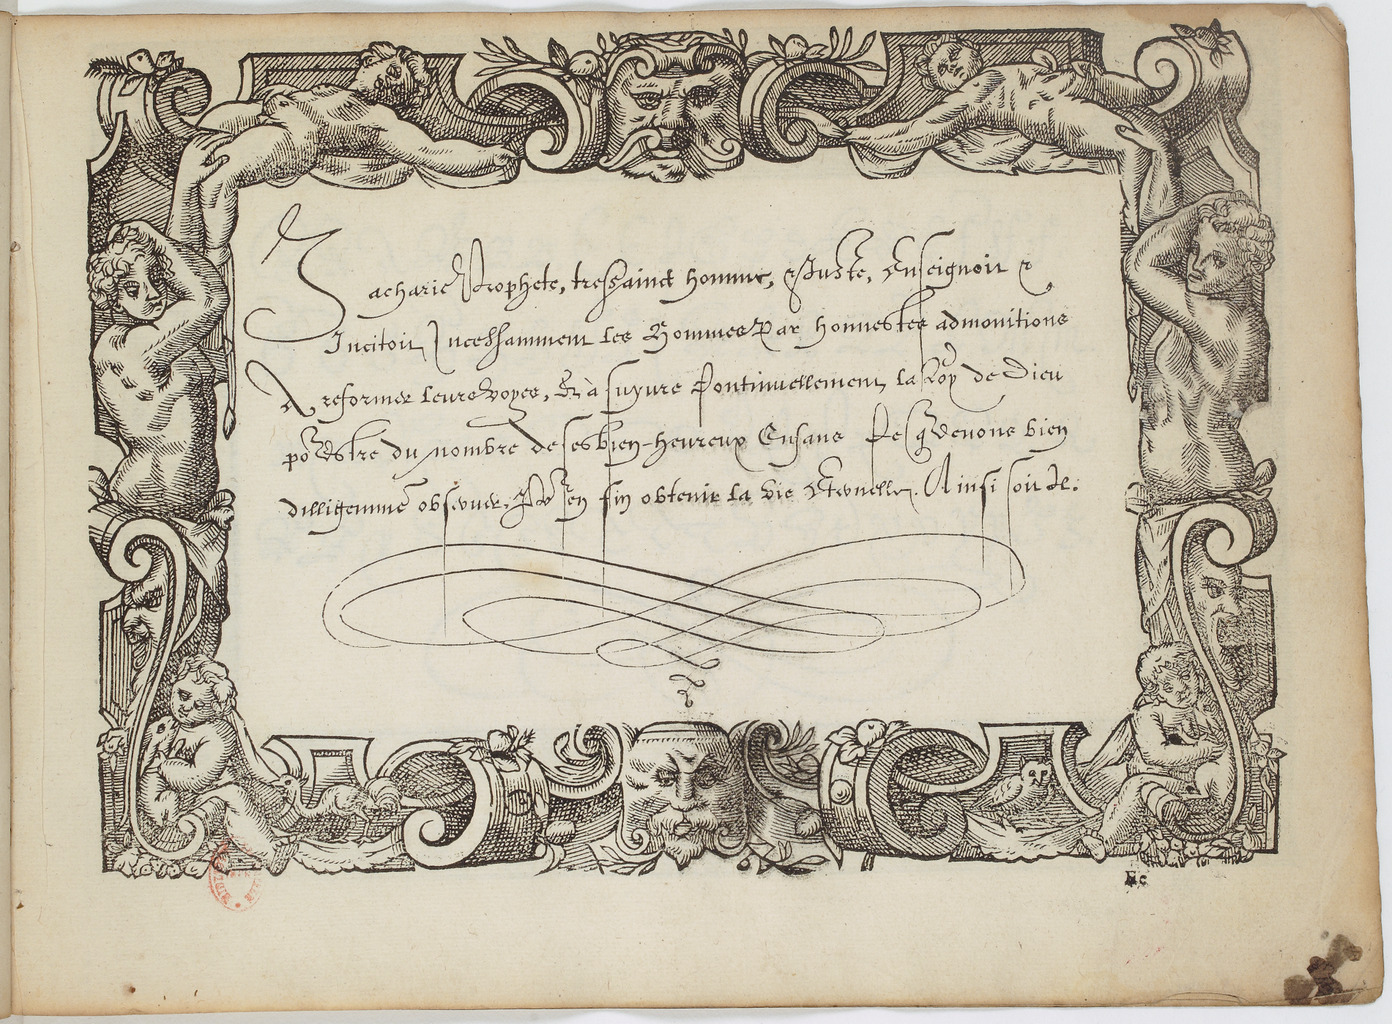 Zacharie Prophete, tressainct homme, & Juste, Enseignoit &
Incitoit Incessamment les Hommes Par honnestes admonitions
A reformer leurs voyes, Et à suyure Continuellement la Loy de Dieu
po estre du nombre de ses bien-heureux Enfans Ce q deuons bien
dilligemmẽ obseruer, Po en fin obtenir la vie Eternelle. Ainsi soit il.
Ec